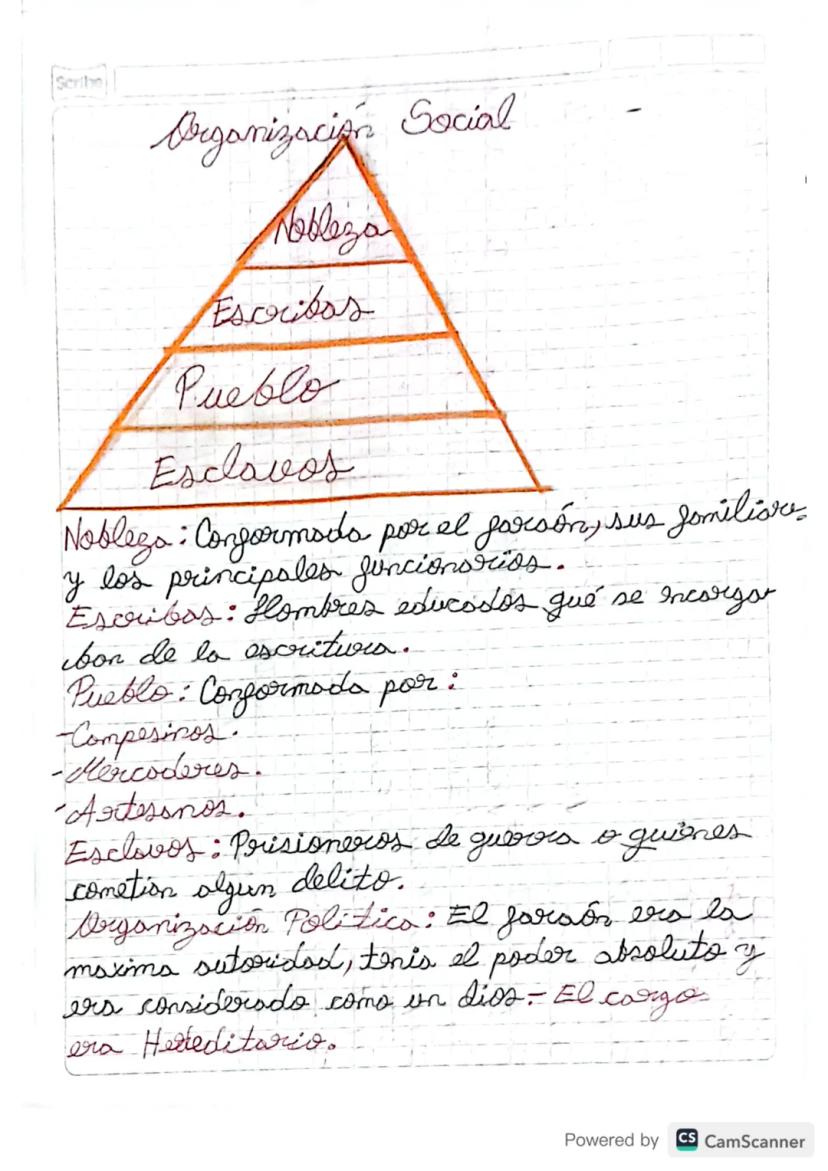 Scribe
Organización Social
Nobleza
Escribas
Pueblo
Esclavos
Nobleza: Conformada por el faraón, sus familiare
y los principales funcionarios.
Escribas: Hombres educados qué se incarga
ban de la escritura.
Pueblo: Conformada por:
-Compesinos.
-Mercaderes.
-Artesanos.
Esclavos: Prisioneros de guerra o quienes
cometian algun delito.
Organización Política: El faraón era la
maxima autoridad, tenia el poder absoluto y
era considerado como un dios.- El cargo
era Hereditario.
Powered by CS CamScanner